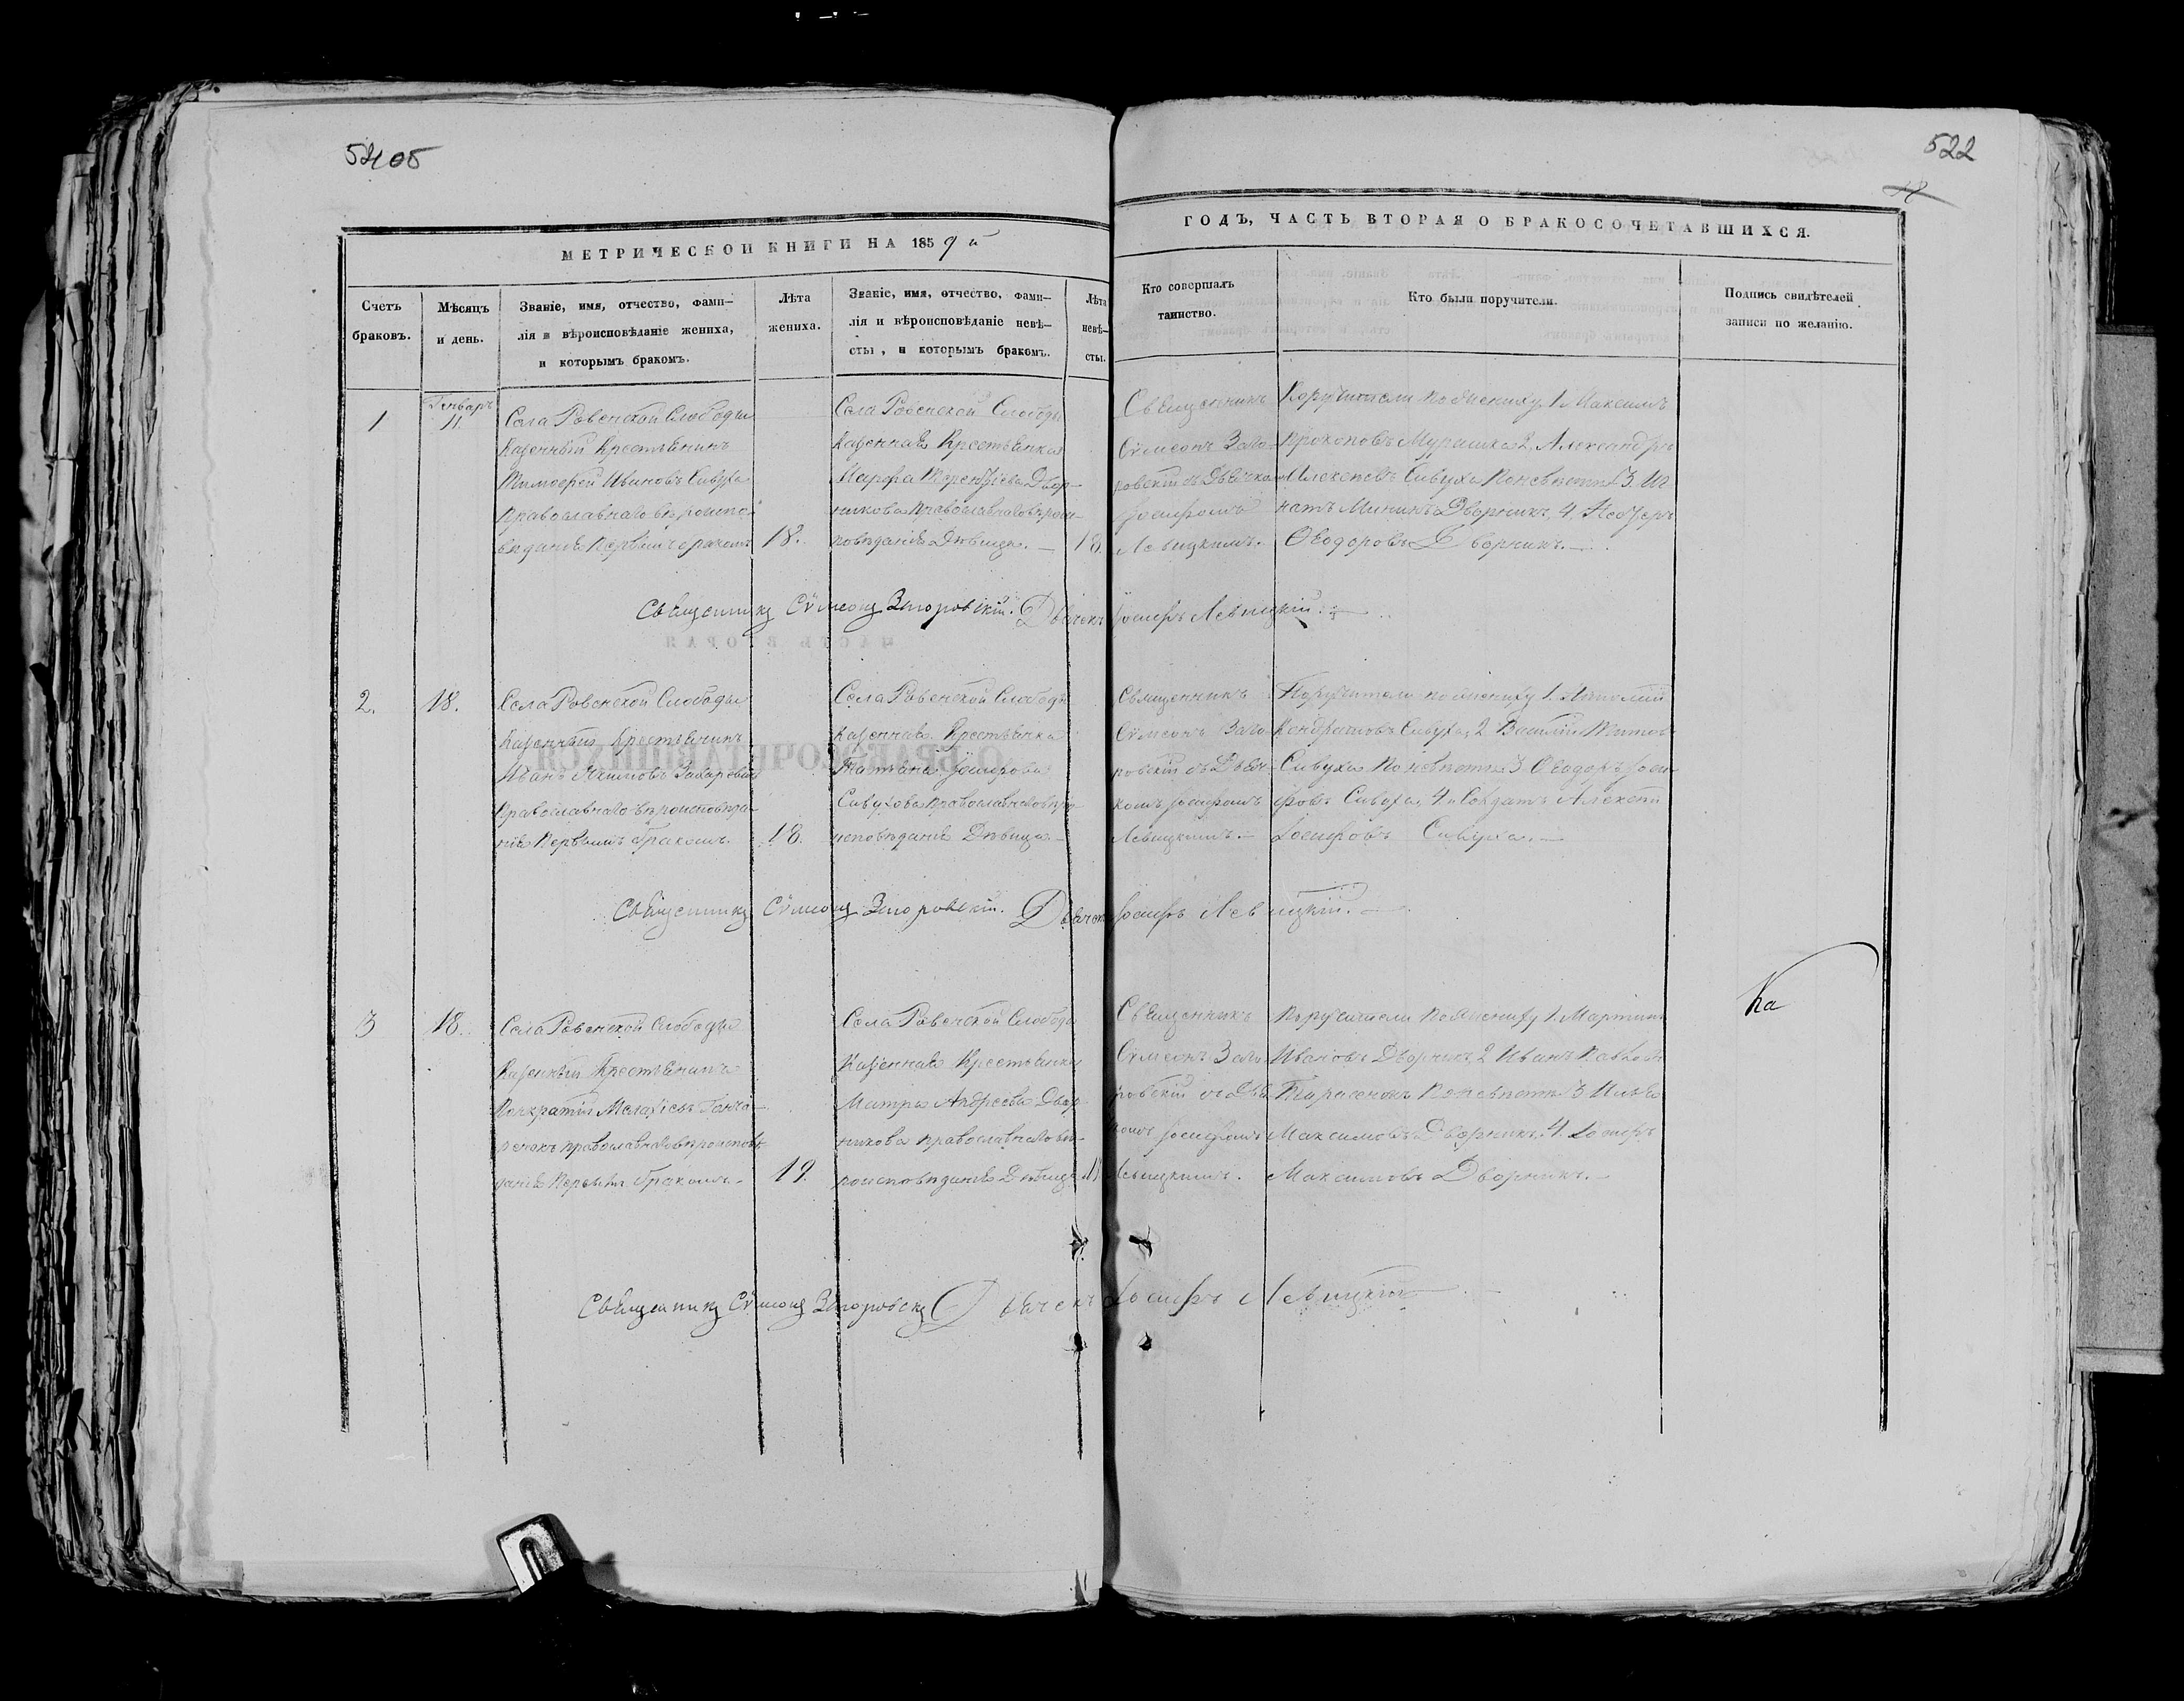 522
МЕТРИЧЕСКОЙ КНИГИ НА 1859 й
ГОДЪ, ЧАСТЬ ВТОРАЯ О БРАКОСОЧЕТАВШИХСЯ.
Счетъ
браковъ.
Мѣсяцъ
и день.
Званіе, имя, отчество, фами–
лія и вѣроисповѣданіе жениха,
и которымъ бракомъ.
Лѣта
жениха.
Званіе, имя, отчество, фами–
лія и вѣроисповѣданіе невѣ–
сты, и которымъ бракомъ.
Лѣта
невѣ–
сты.
Кто совершалъ
таинство.
Кто были поручители.
Подпись свидѣтелей
записи по желанію.
1
Генваръ
11.
Села Ровенской Слободы
Казенный Крестьянинъ
Тимофей Ивановъ Сивуха
Православнаго вѣроиспо–
вѣданія Первымъ бракомъ
18.
Села Ровенской Слободы
Казенная Крестьянка
Марфа Двор–
никова Православнаго вѣроис–
повѣданія Дѣвица. —
18.
Священникъ
Сѵмеонъ Заго–
ровскій съ Дьячкомъ
Іосифомъ
Левицкимъ.
Поручители по жениху 1. Максимъ
Прокоповъ Мурашка 2. Александръ
Алексѣевъ Сивуха По невѣстѣ 3. Иг
натъ Мининъ Дворникъ, 4.
Ѳеодоровъ Дворникъ. —
Священникъ Сѵмеонъ Загоровскій. Дьячекъ Іосифъ Левицкій.
2.
18.
Села Ровенской Слободы
Казенный Крестьянинъ
Иванъ
Православнаго вѣроисповѣда–
нія Первымъ бракомъ.
18.
Села Ровенской Слободы
Казенная Крестьянка
Татіана Іосифова
Сивухова православнаго вѣро
исповѣданія Дѣвица. —
Священникъ
Сѵмеонъ Заго–
ровскій съ Дьяч–
комъ Іосифомъ
Левицкимъ. —
Поручители по жениху 1.
Кондратовъ Сивуха, 2 Василій Титов
Сивуха По невѣстѣ 3 Ѳеодоръ Іоси–
фовъ Сивуха, 4. Солдатъ Алексѣй
Іосифовъ Сивуха. —
Священникъ Сѵмеонъ Загоровскій. Дьячекъ Іосифъ Левицкій. —
3
18.
Села Ровенской Слободы
Казенный Крестьянинъ
Гонча–
ренокъ православнаго вѣроисповѣ–
данія Первымъ бракомъ. –
19.
Села Ровенской Слободы
Казенная Крестьянка
Андреева Двор–
никова православнаго вѣ–
роисповѣданія Дѣвица
Священникъ
Сѵмеонъ Заго–
ровскій съ Дья
комъ Іосифомъ
Левицкимъ.
Поручители По жениху 1. Мартинъ
Ивановъ Дворникъ, 2 Иванъ
Тарасенокъ По невѣстѣ 3 Илья
Максимовъ Дворникъ, 4. Іосифъ
Максимовъ Дворникъ. –
Ка
Священникъ Сѵмеонъ Загоровскій Дьячекъ Іосифъ Левицкій